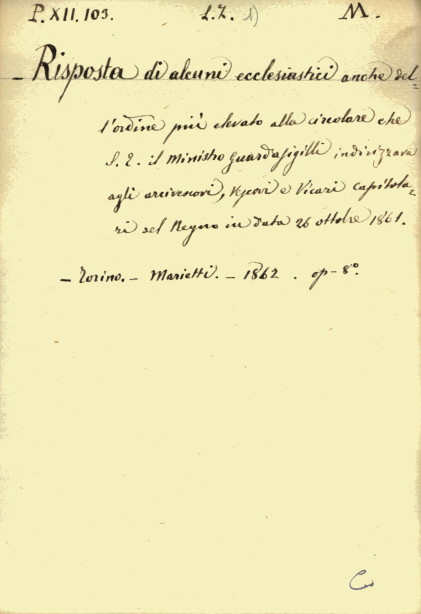 P. XII. 103. L.Z. 1) M.
- Risposta di alcuni ecclesiastici anche del=
l'ordine più elevato alla circolare che
S. E. il Ministro Guardasigilli indirizzava
agli arcivescovi, Vescovi e Vicari capitola=
ri del Regno in data 26 ottobre 1861.
- Torino. - Marietti. - 1862 . op - 8°.